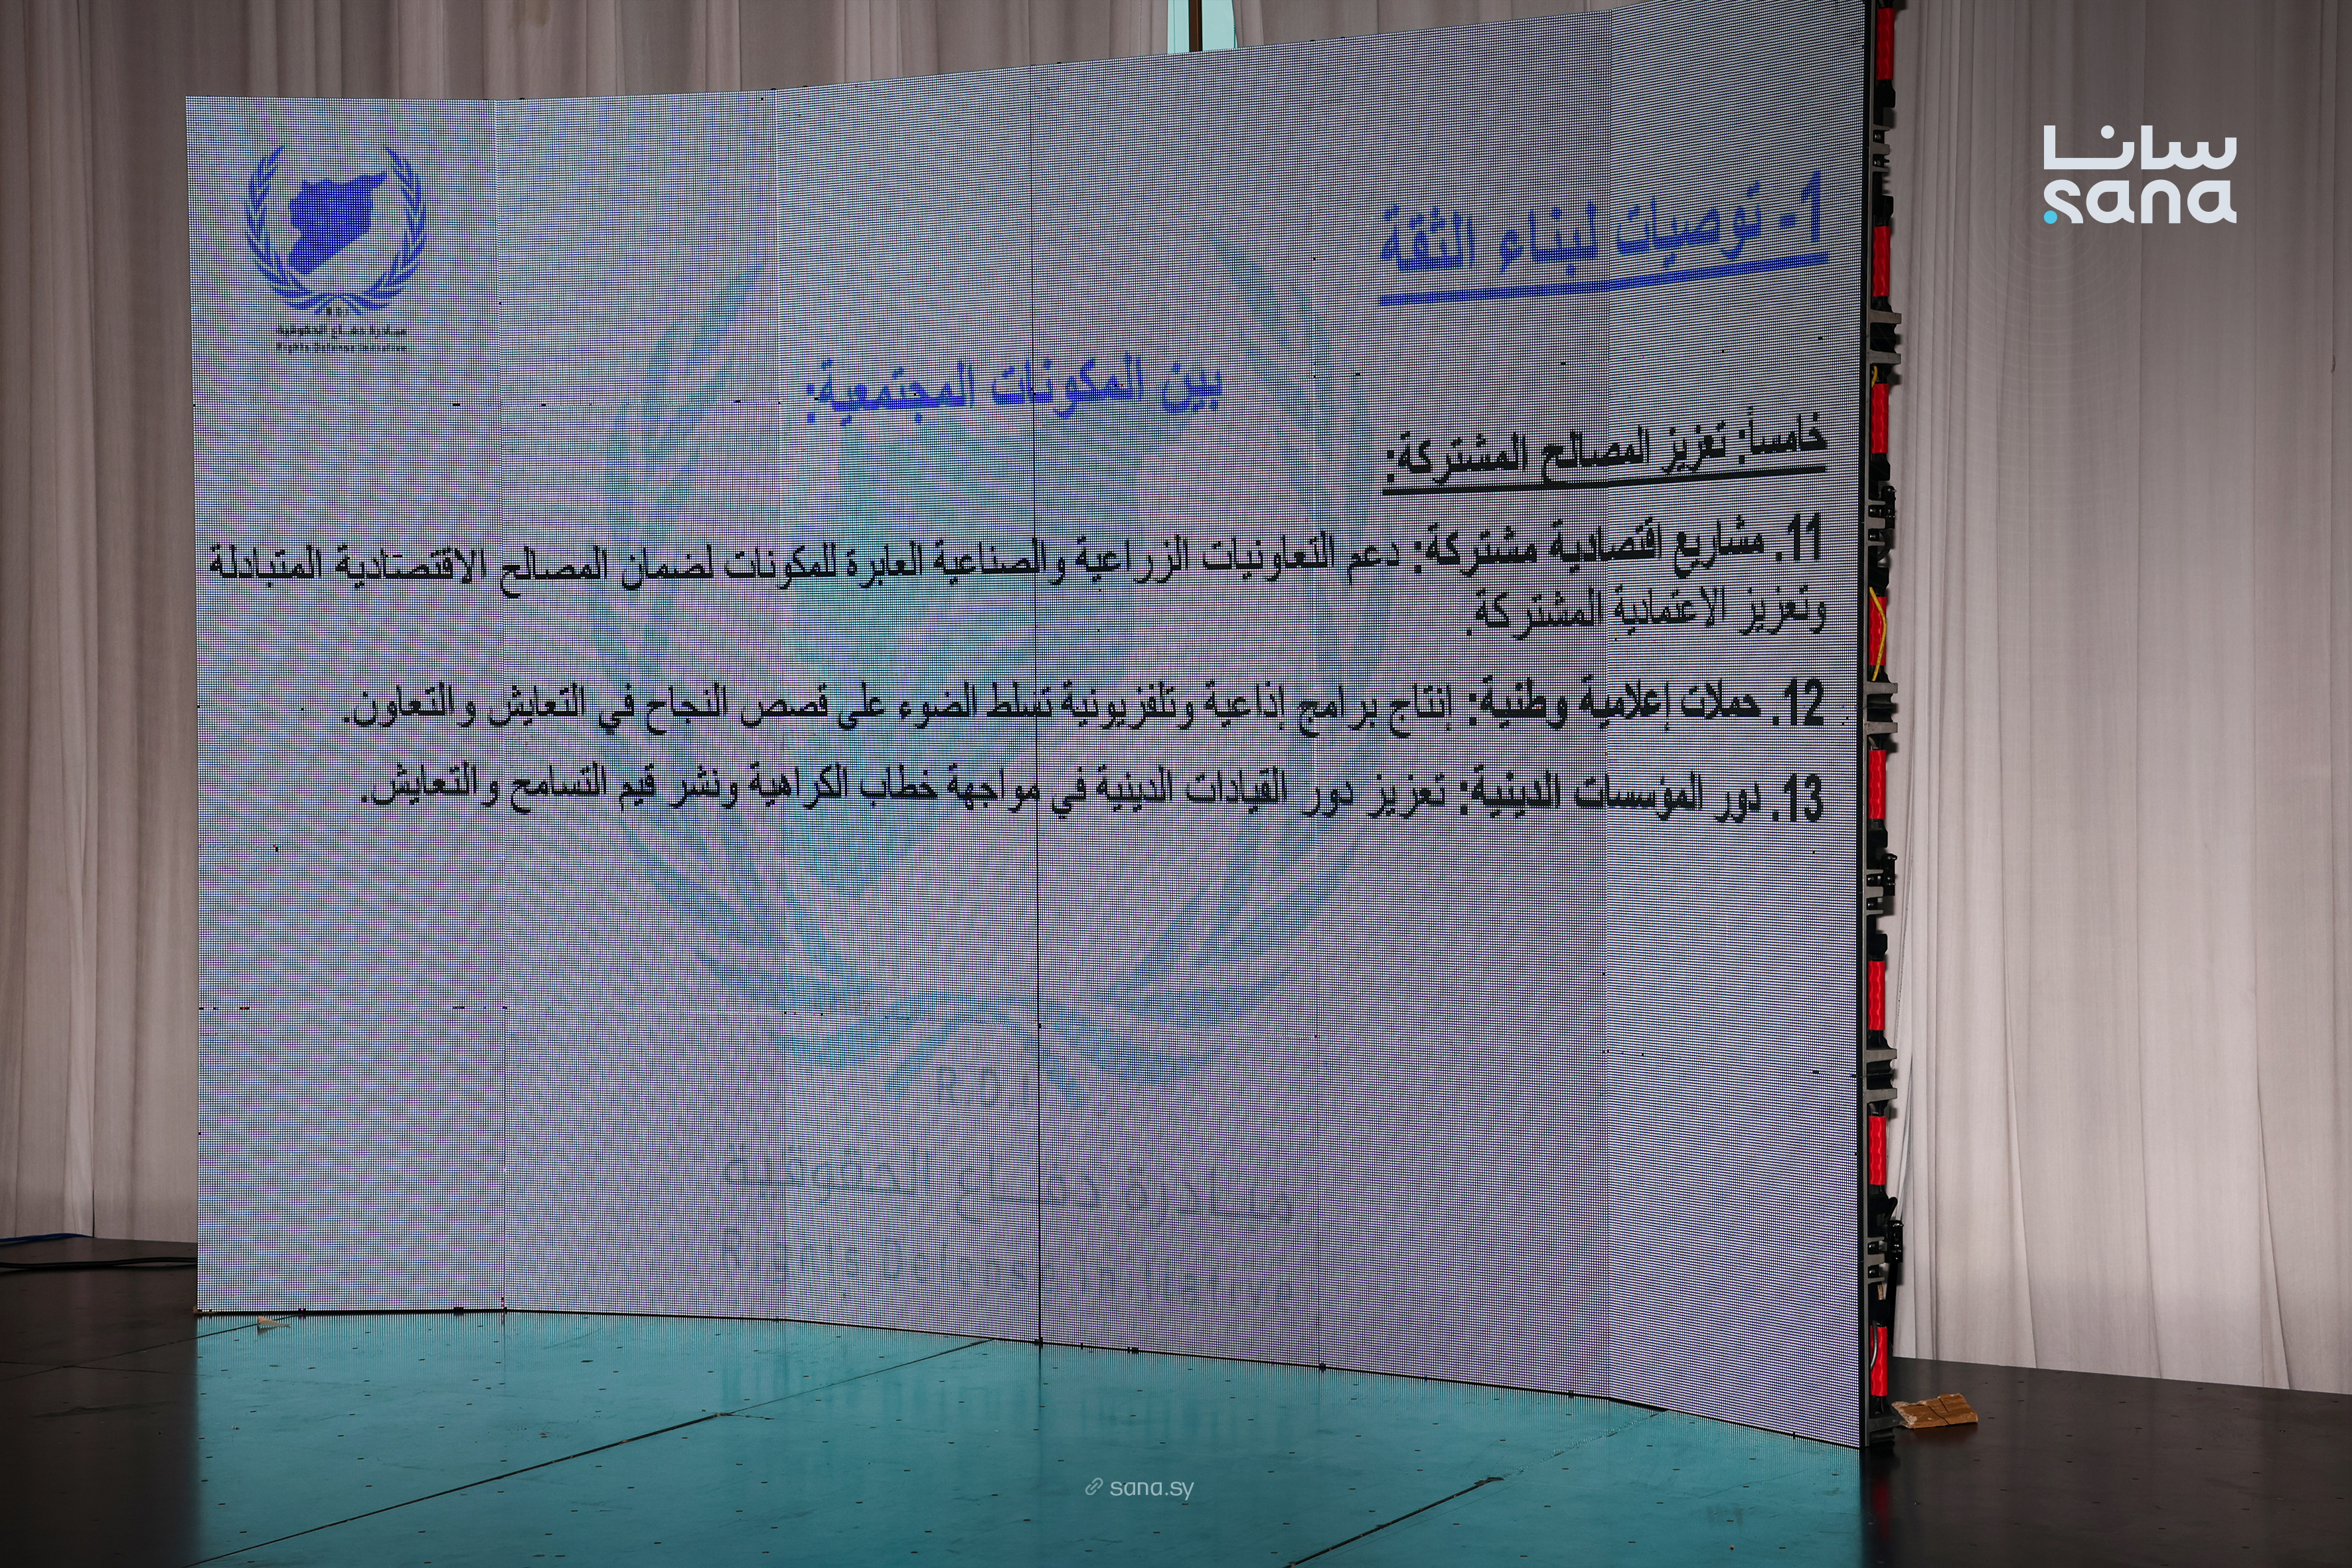 سانا
sana
R.D.I
مبادرة دفاع الحقوقية
Rights Defense Initiative
1- توصيات لبناء الثقة
بين المكونات المجتمعية:
خامساً: تعزيز المصالح المشتركة:
11. مشاريع اقتصادية مشتركة: دعم التعاونيات الزراعية والصناعية العابرة للمكونات لضمان المصالح الاقتصادية المتبادلة
وتعزيز الاعتمادية المشتركة.
12. حملات إعلامية وطنية: إنتاج برامج إذاعية وتلفزيونية تسلط الضوء على قصص النجاح في التعايش والتعاون.
13. دور المؤسسات الدينية: تعزيز دور القيادات الدينية في مواجهة خطاب الكراهية ونشر قيم التسامح والتعايش.
R.D.I
مبادرة دفاع الحقوقية
Rights Defense Initiative
sana.sy